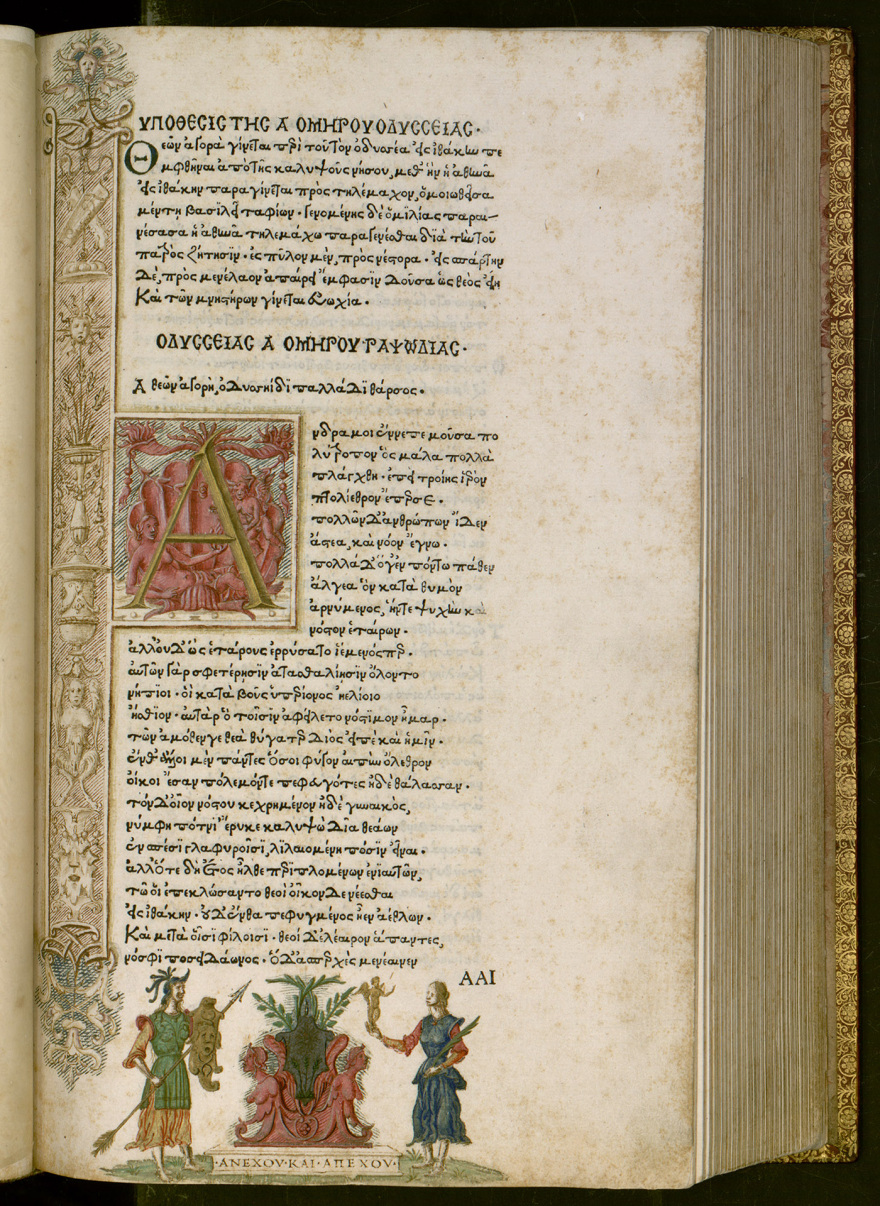 ΥΠΟΘΕCΙC ΤΗC Α ΟΜΗΡΟΥ ΟΔΥCCΕΙΑC·
Θεῶν ἀγορὰ γίνεται περὶ τοῦ τὸν ὀδυσέα εἰς ἰθάκην πε
μφθῆναι ἀπὸ τῆς καλυψοῦς νήσου, μεθ' ἣν ἡ ἀθηνᾶ
εἰς ἰθάκην παραγίνεται πρὸς τηλέμαχον, ὁμοιωθεῖσα
μέντῃ βασιλεῖ ταφίων· γενομένης δὲ ὁμιλίας παραι-
νέσασα ἡ ἀθηνᾶ τηλεμάχω παραγενέσθαι διὰ τὴν τοῦ
πατρὸς ζήτησιν· ἐς πύλον μὲν, πρὸς νέστορα· εἰς σπάρτην
δὲ, πρὸς μενέλαον ἀπαίρει ἔμφασιν δοῦσα ὡς θεὸς εἴη
Καὶ τῶν μνηστήρων γίνεται εὐωχία·
ΟΔΥCCΕΙΑC Α ΟΜΗΡΟΥ ΡΑΨΩΔΙΑC·
Α θεῶν ἀγορή, ὀδυσηίδι παλλάδι θάρσος·
Ανδρα μοι ἔννεπε μοῦσα πο
λύτροπον ὃς μάλα πολλὰ
πλάγχθη· ἐπεὶ τροίης ἱερὸν
πτολίεθρον ἔπερσε·
πολλῶν δ' ἀνθρώπων ἴδεν
ἄστεα, καὶ νόον ἔγνω·
πολλὰ δ' ὅγ' ἐν πόντω πάθεν
ἄλγεα ὃν κατὰ θυμὸν
ἀρνύμενος, ἥντε ψυχὴν καὶ
νόστον ἑταίρων·
ἀλλ' οὐδ' ὣς ἑτάρους ἐρρύσατο ἱέμενός περ·
αὐτῶν γὰρ σφετέρησιν ἀτασθαλίησιν ὄλοντο
νήπιοι· οἳ κατὰ βοῦς ὑπερίονος ἠελίοιο
ἤσθιον· αὐτὰρ ὁ τοῖσιν ἀφείλετο νόστιμον ἦμαρ·
τῶν ἁμόθενγε θεὰ θύγατερ διὸς εἰπὲ καὶ ἡμῖν·
ἔνθ' ἄλλοι μὲν πάντες ὅσοι φύγον αἰπὺν ὄλεθρον
οἴκοι ἔσαν πόλεμόντε πεφευγότες ἠδὲ θάλασσαν·
τὸν δ' οἶον νόστου κεχρημένον ἠδὲ γυναικὸς,
νύμφη πότνι' ἔρυκε καλυψὼ δῖα θεάων
ἐν σπέσσι γλαφυροῖσι, λιλαιομένη πόσιν εἶναι·
ἀλλ' ὅτε δὴ ἔτος ἦλθε περιπλομένων ἐνιαυτῶν,
τῶ οἱ ἐπεκλώσαντο θεοὶ οἶκον δε νέεσθαι
εἰς ἰθάκην· οὐδ' ἔνθα πεφυγμένος ἦεν ἀέθλων·
Καὶ μετὰ οἷσι φίλοισι· θεοὶ δ' ἐλέαιρον ἅπαντες,
νόσφι ποσειδάωνος· ὁ δ' ἀσπερχὲς μενέαινεν
ΑΑΙ
·ΑΝΕΧΟΥ·ΚΑΙ·ΑΠΕΧΟΥ·